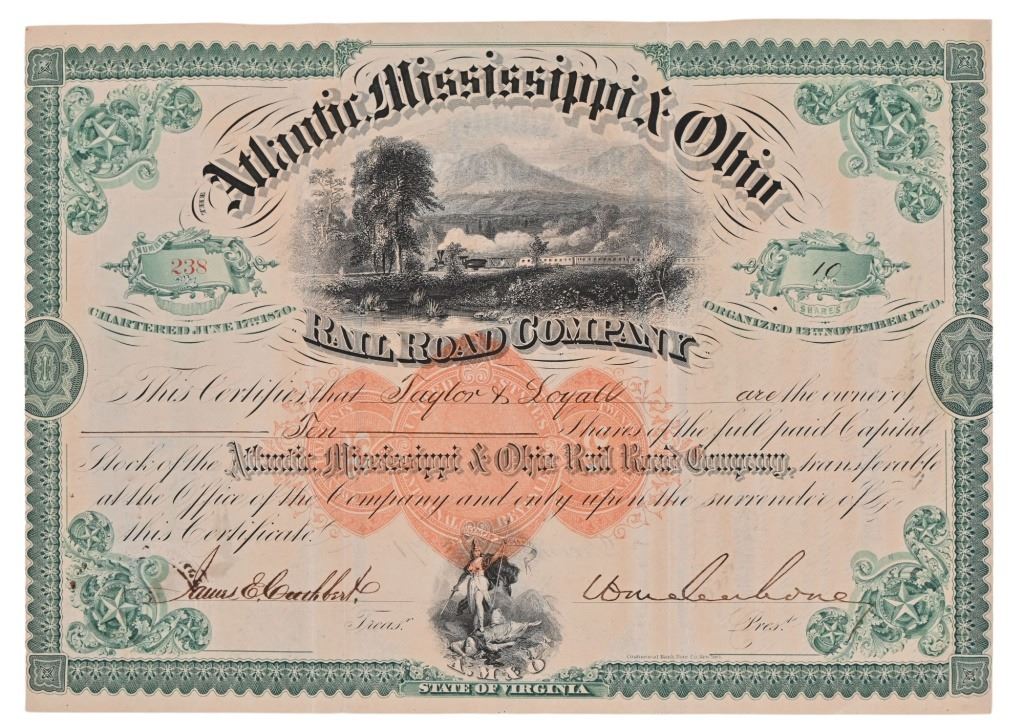 THE
Atlantic, Mississippi & Ohio
NUMBER
238
10
SHARES
CHARTERED JUNE 17TH 1870.
ORGANIZED 12TH NOVEMBER 1870.
RAIL ROAD COMPANY
This Certifies that Taylor & Loyall are the owner of
Ten Shares of the full paid Capital
Stock of the Atlantic, Mississippi & Ohio Rail Road Company, transferable
at the Office of the Company and only upon the surrender of
this Certificate.
James E. Cuthbert
Treasr.
Wm Mahone
Prest.
Continental Bank Note Co. New York.
A. M & O
STATE OF VIRGINIA